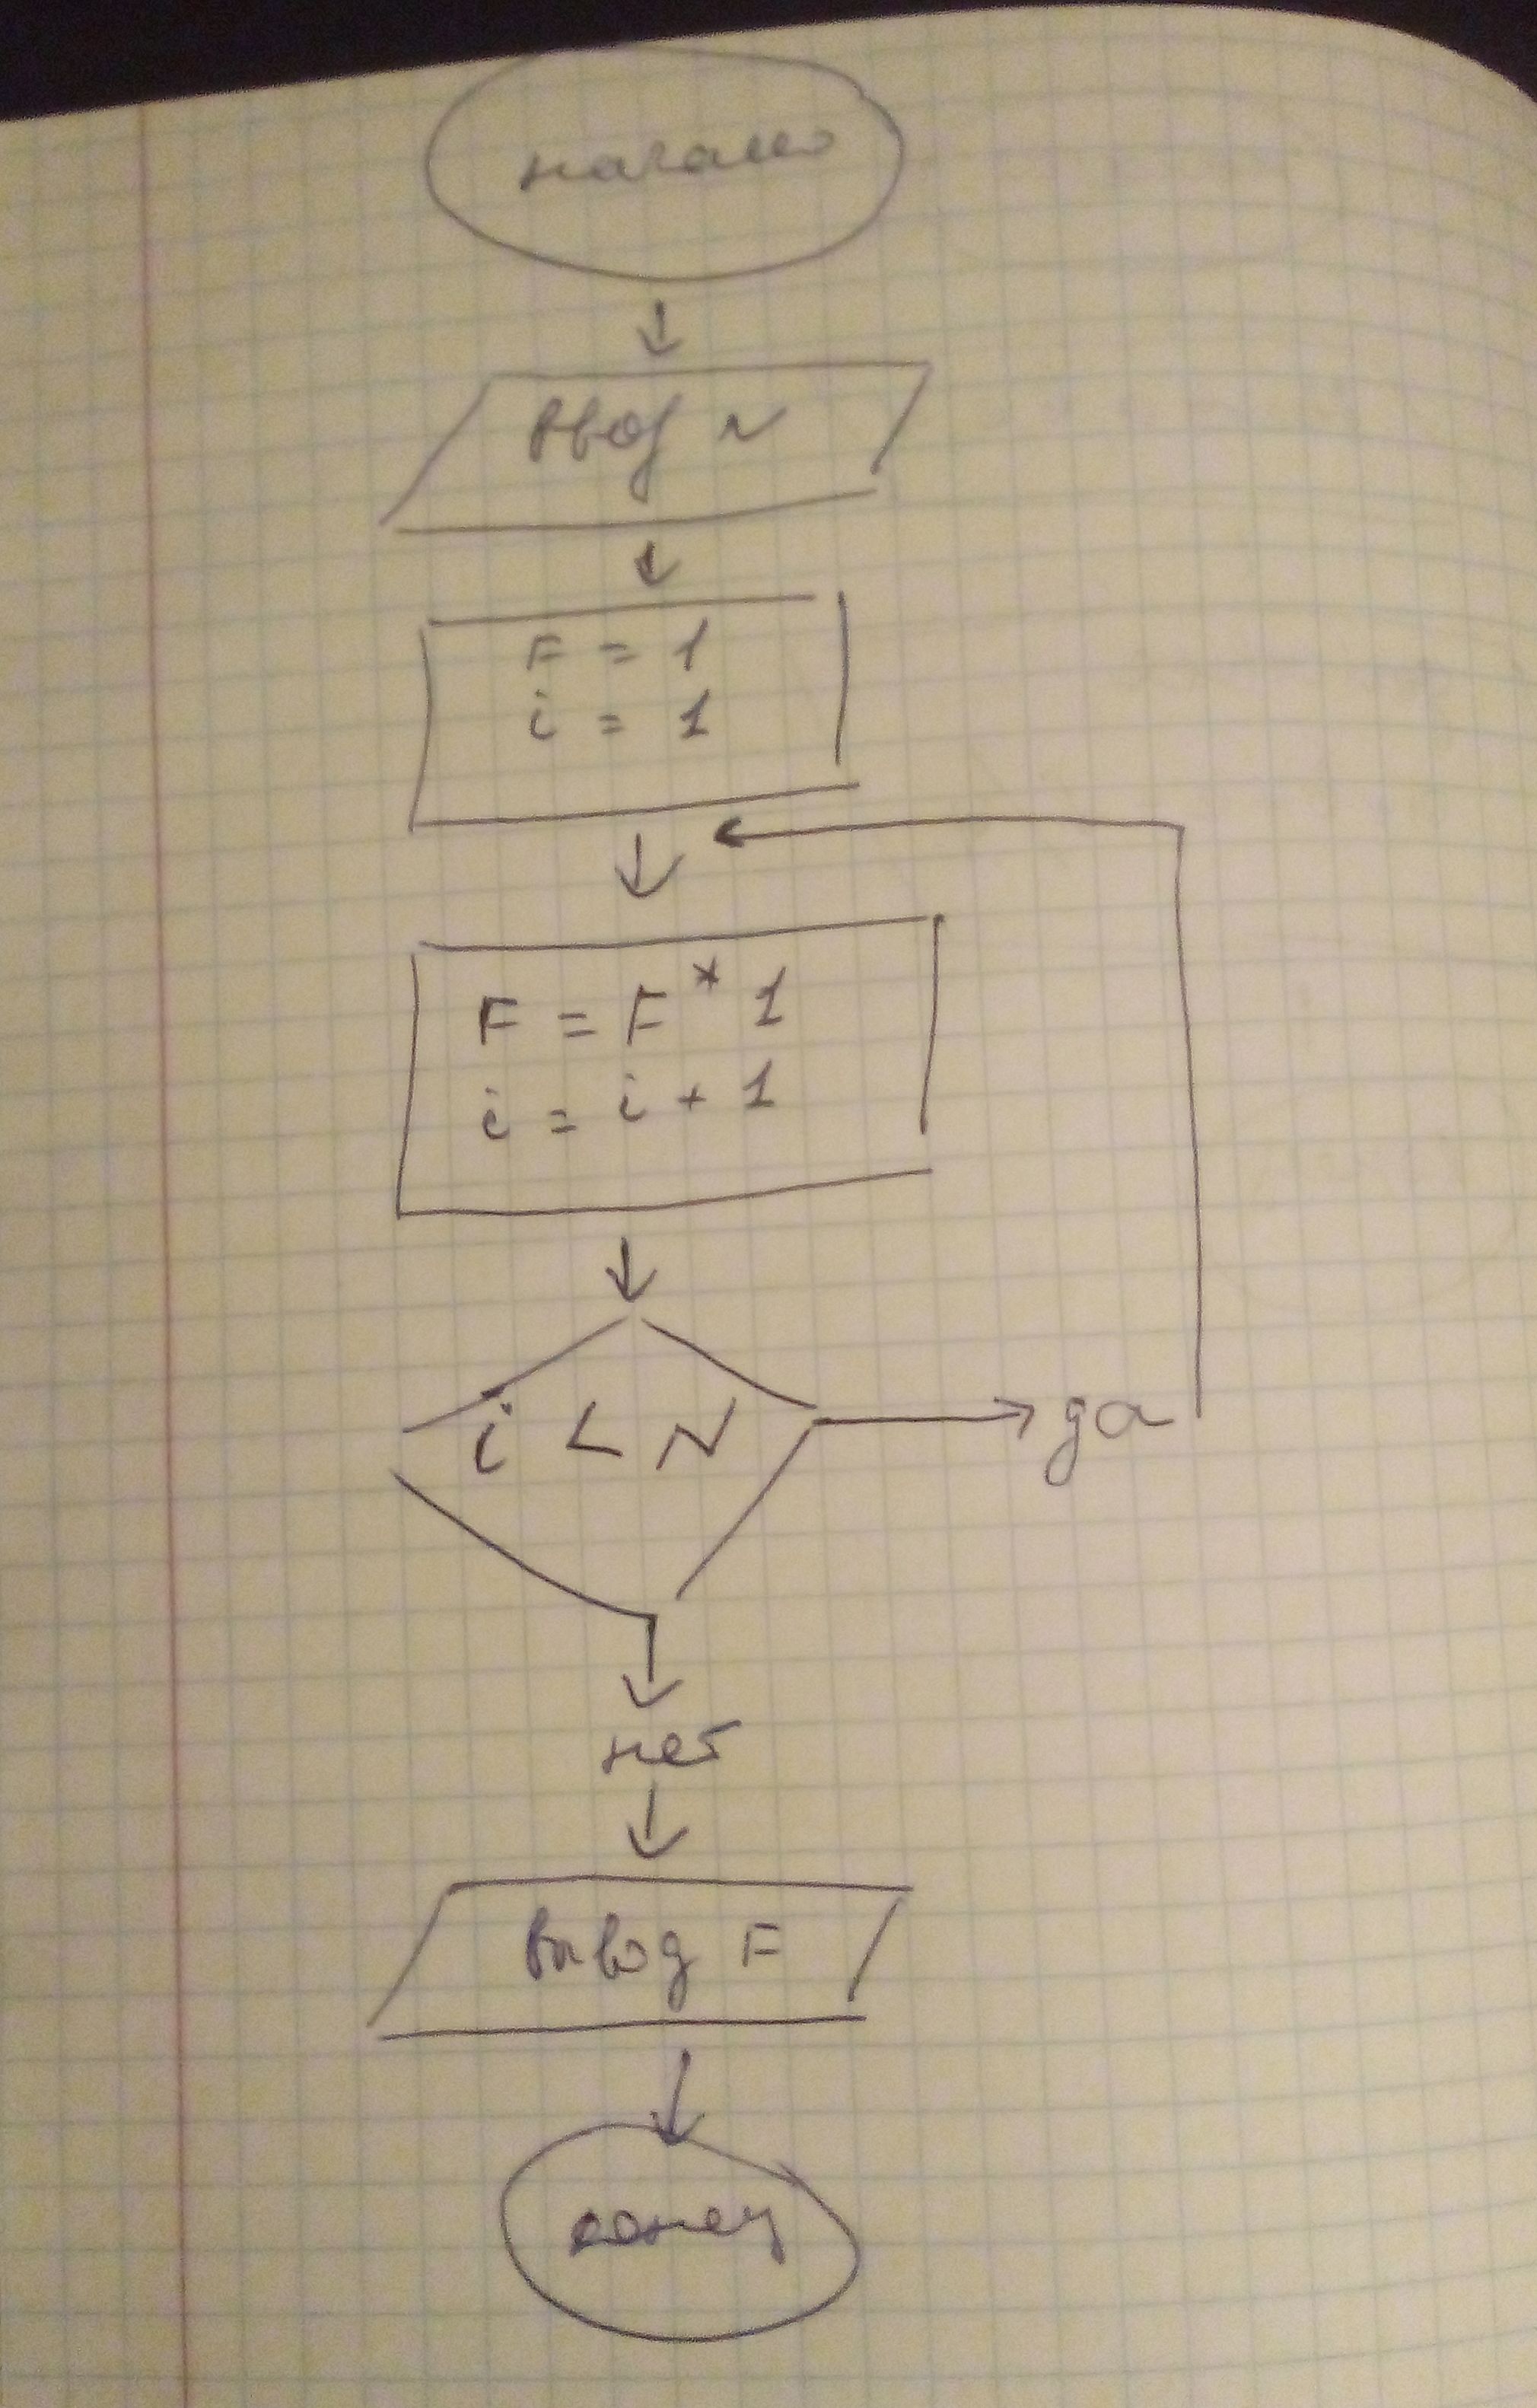 начало
Ввод N
F = 1
i = 1
F = F * 1
i = i + 1
i < N
да
нет
Вывод F
конец